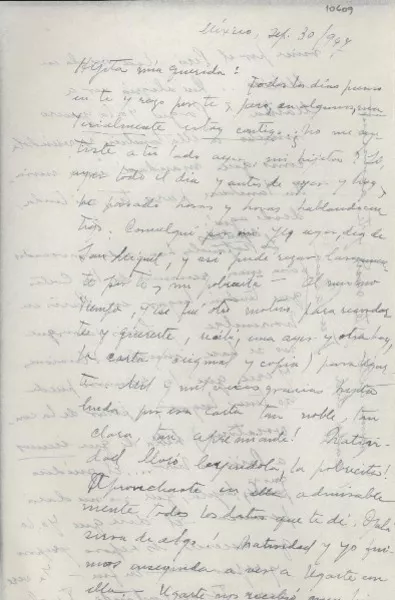 10609
México, Sep. 30/948
Hijita mía querida: Todos los días pienso
en ti y rezo por ti, pero en algunos ma-
terialmente estoy contigo. ¿No me sen-
tiste a tu lado ayer, mi hijita? Sí,
ayer todo el día y antes de ayer y hoy,
he pasado horas y horas hablando
. Comulgué por mi ayer, día de
San Miguel, y así pude rezar
te por ti y mi pobrecita — Al mismo
tiempo, y ese fué otro motivo para recordar-
te y quererte, recibí, una ayer y otra hoy,
la carta original y copia, para
. Mil y mil veces gracias hijita
linda por esa carta tan noble, tan
clara, tan apremiante! Nativi-
dad lloró leyéndola, la pobrecita!
Aprovechaste en ella admirable-
mente todos los datos que te dí. Ojalá
sirva de algo! Natividad y yo fui-
mos enseguida a ver a Ugarte con
ella — Ugarte nos recibió muy